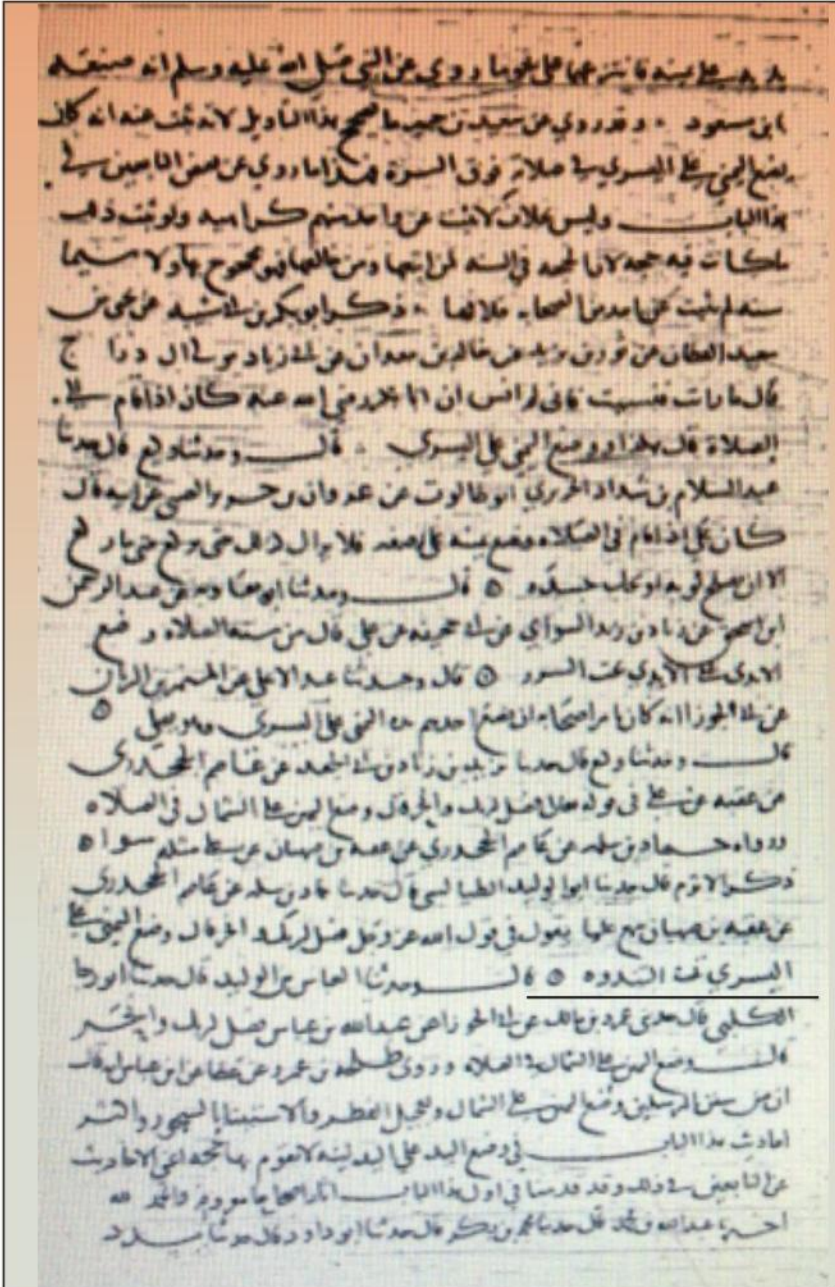 على يمينه فانتزعها على نحو ما روي عن النبي صلى الله عليه وسلم انه صنعه
ابن مسعود وقد روي عن سعيد بن جبير ما يصحح هذا التاويل لانه ثبت عنه انه كان
يضع اليمنى على اليسرى في صلاته فوق السرة فهذا ما روي عن بعض التابعين في
هذا الباب وليس بخلاف لانه لا يثبت عن واحد منهم كراهيه ولو ثبت ذلك
ما كانت فيه حجه لان الحجه في السنه لمن اتبعها ومن خالفها فهو محجوج بها ولا سيما
سنه لم يثبت عن احد من الصحابه خلافها ذكر ابو بكر بن ابي شيبه عن يحيى بن
سعيد القطان عن ثور بن يزيد عن خالد بن معدان عن ابي زياد مولى ال دراج
قال ما رايت فنسيت فاني لم انس ان ابا بكر رضي الله عنه كان اذا قام في
الصلاة قال هكذا ووضع اليمنى على اليسرى قال وحدثنا وكيع قال حدثنا
عبد السلام بن شداد الجريري ابو طالوت عن غزوان بن جرير الضبي عن ابيه قال
كان علي اذا قام في الصلاه وضع يمينه على رصغه فلا يزال كذلك حتى يركع متى ما ركع
الا ان يصلح ثوبه او يحك جسده ٥ قال وحدثنا ابو معاويه عن عبد الرحمن
ابن اسحق عن زياد بن زيد السواي عن ابي جحيفه عن علي قال من سنه الصلاه وضع
الايدي على الايدي تحت السرر ٥ قال وحدثنا عبد الاعلى عن المستمر بن الريان
عن ابي الجوزا انه كان يامر اصحابه ان يضع احدهم يده اليمنى على اليسرى وهو يصلي ٥
قال وحدثنا وكيع قال حدثنا يزيد بن زياد بن ابي الجعد عن عاصم الجحدري
عن عقبه عن علي في قوله فصل لربك وانحر قال وضع اليمين على الشمال في الصلاه
ورواه حماد بن سلمه عن عاصم الجحدري عن عقبه بن صهبان عن علي مثله سوا ٥
ذكر الاثرم قال حدثنا ابو الوليد الطيالسي قال حدثنا حماد بن سلمه عن عاصم الجحدري
عن عقبه بن صهبان سمع عليا يقول في قول الله عز وجل فصل لربك وانحر قال وضع اليمنى على
اليسرى تحت ٥ قال وحدثنا العباس بن الوليد قال حدثنا ابو رجا
الكليبي قال حدثني عمرو بن مالك عن ابي الجوزا عن عبد الله بن عباس فصل لربك وانحر
قال وضع اليمين على الشمال في الصلاه وروى طلحه بن عمرو عن عطا عن ابن عباس انه قال
ان من سنن المرسلين وضع اليمين على الشمال وتعجيل الفطر والاستينا بالسحور
احاديث هذا الباب في وضع اليد على اليد لينه لا تقوم بها حجه اعني الاحاديث
عن التابعين في ذلك وقد قدمنا في اول هذا الباب اثارا صحاحا مرفوعه والحمد لله
اخبرنا عبد الله بن محمد قال حدثنا محمد بن بكر قال حدثنا ابو داود قال حدثنا مسدد